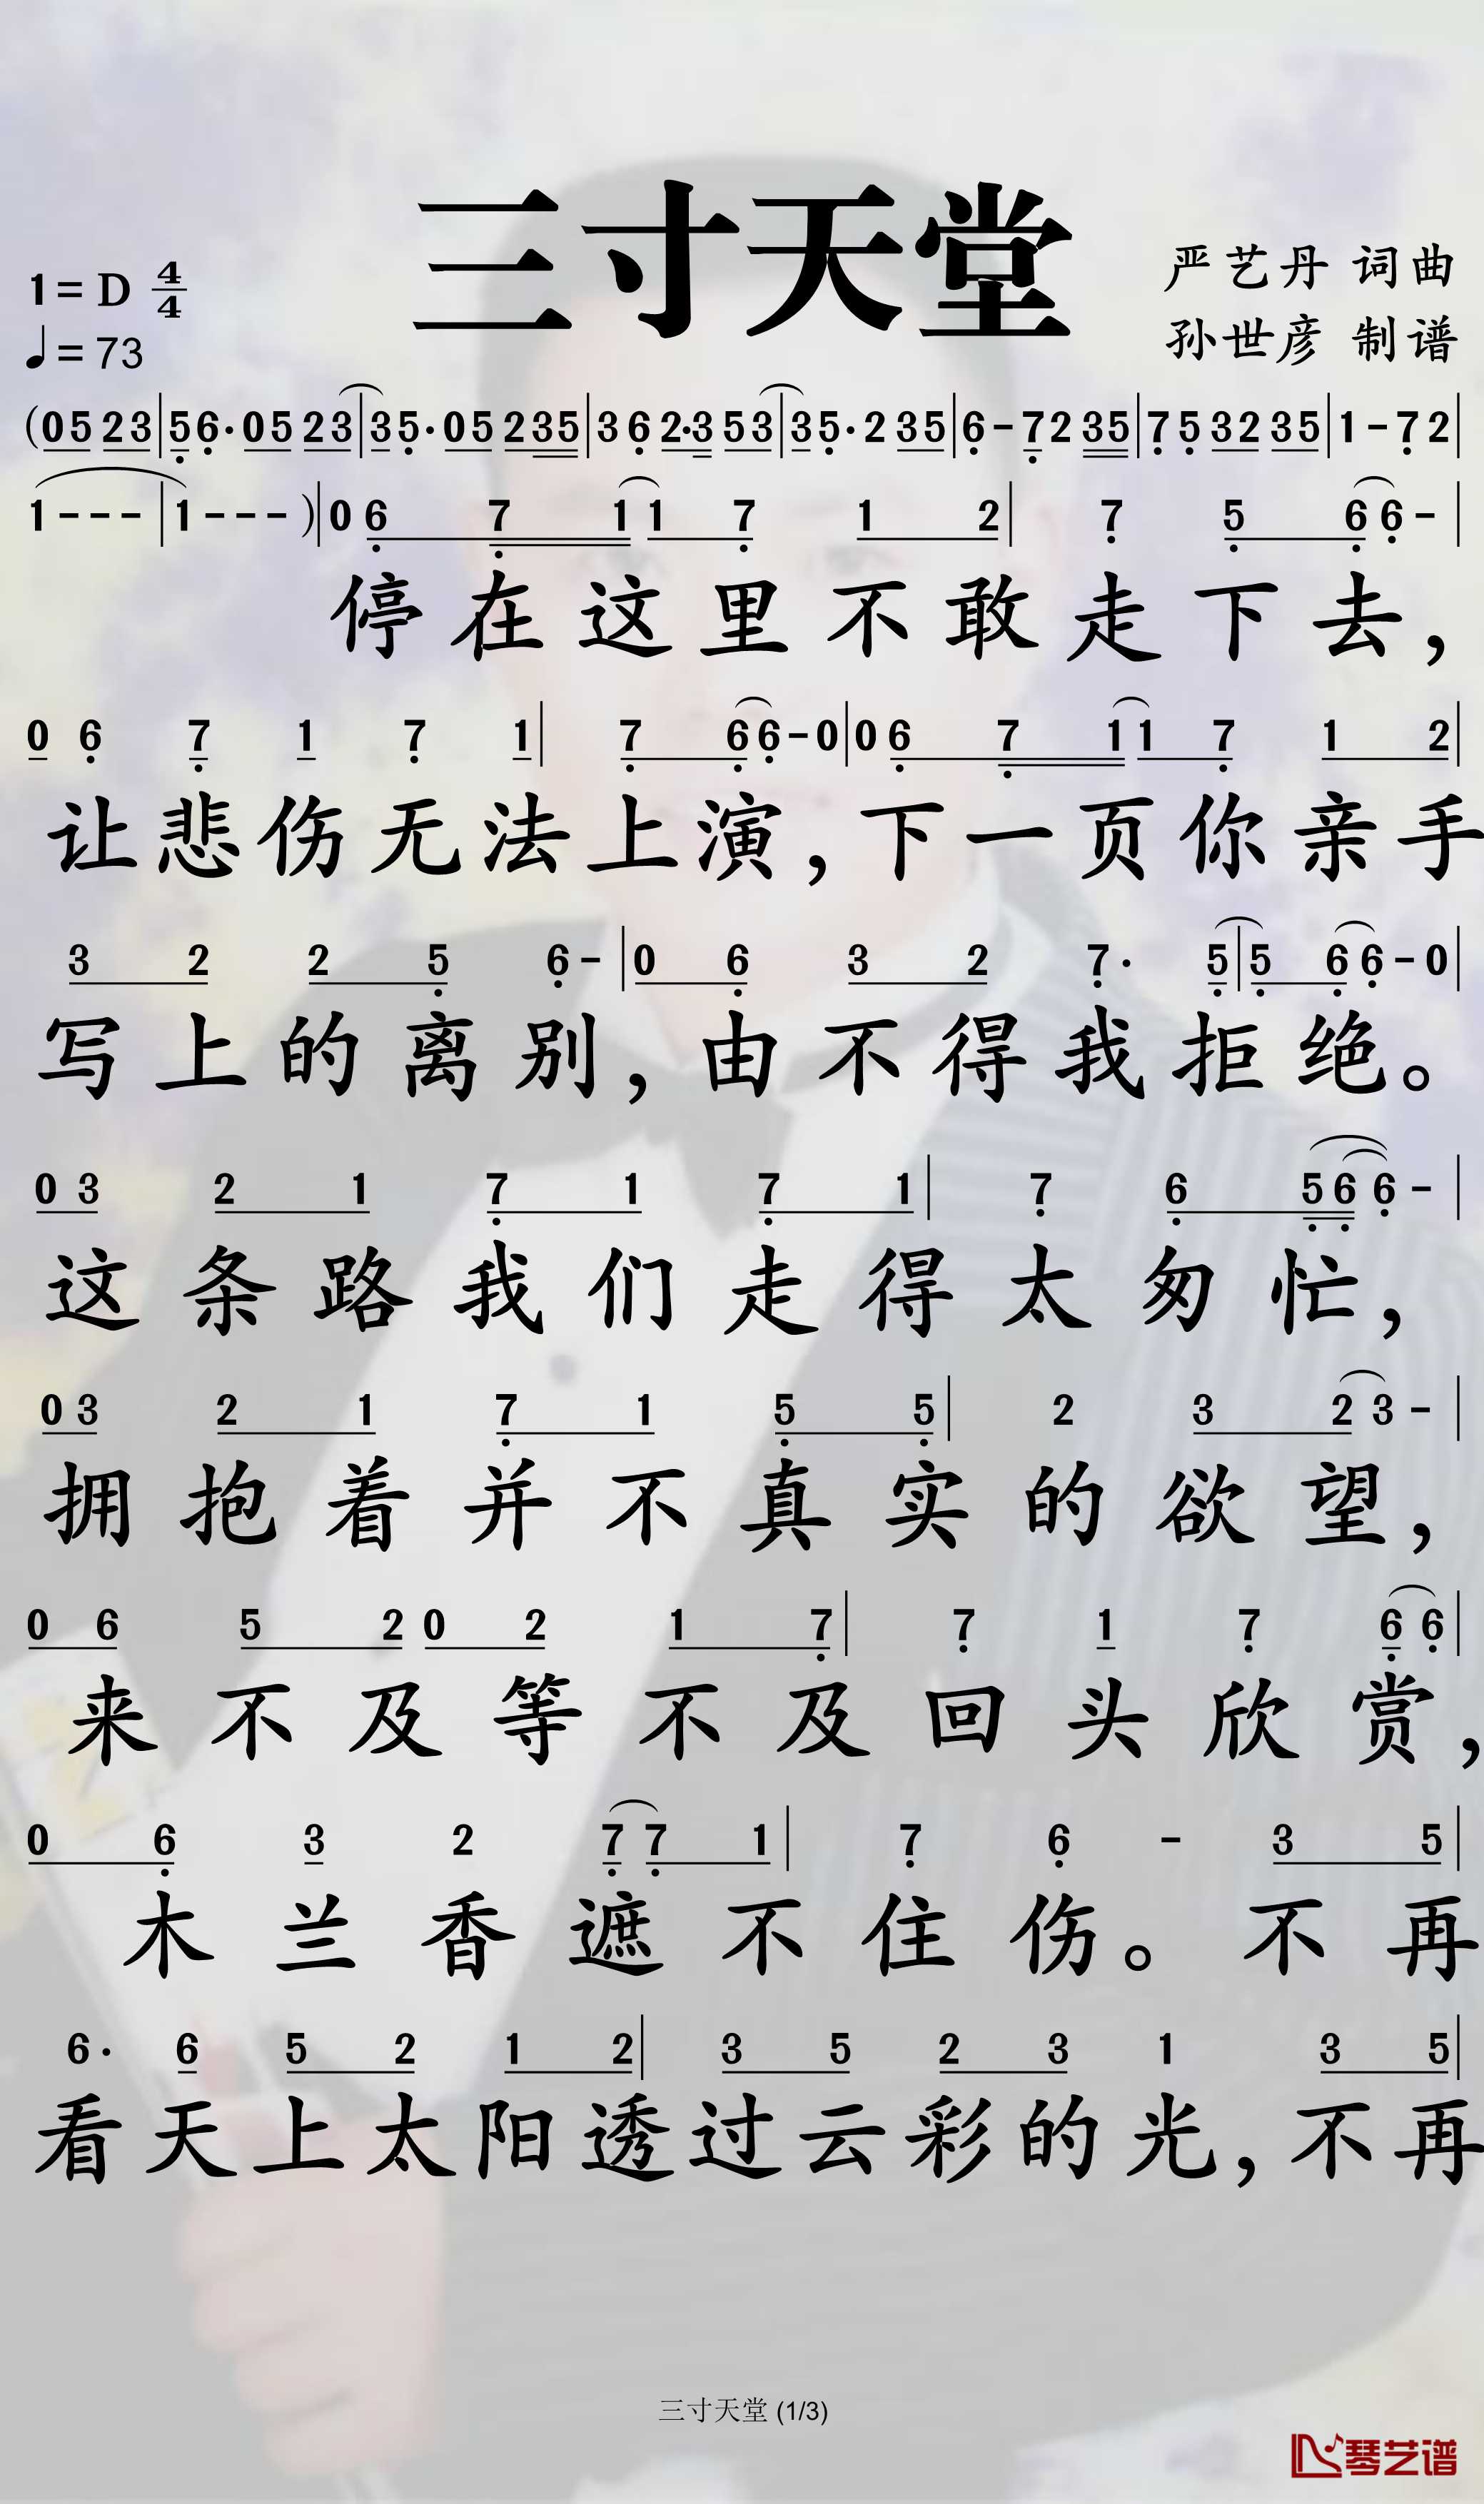 三寸天堂
1=D 4/4
♩=73
严艺丹 词曲
孙世彦 制谱
(05 23|56·05 23|35·05 235|36 2·3 53|35·2 35|6-72 35|75 32 35|1-72|
1---|1---)|0 6 7 1 1 7 1 2|7 5 6 6-|
停在这里不敢走下去，
0 6 7 1 7 1|7 6 6-0|0 6 7 1 1 7 1 2|
让悲伤无法上演，下一页你亲手
3 2 2 5 6-|0 6 3 2 7· 5|5 6 6-0|
写上的离别，由不得我拒绝。
0 3 2 1 7 1 7 1|7 6 5 6 6-|
这条路我们走得太匆忙，
0 3 2 1 7 1 5 5|2 3 2 3-|
拥抱着并不真实的欲望，
0 6 5 2 0 2 1 7|7 1 7 6 6|
来不及等不及回头欣赏，
0 6 3 2 7 7 1|7 6 - 3 5|
木兰香遮不住伤。不再
6· 6 5 2 1 2|3 5 2 3 1 3 5|
看天上太阳透过云彩的光，不再
三寸天堂 (1/3)
琴艺谱